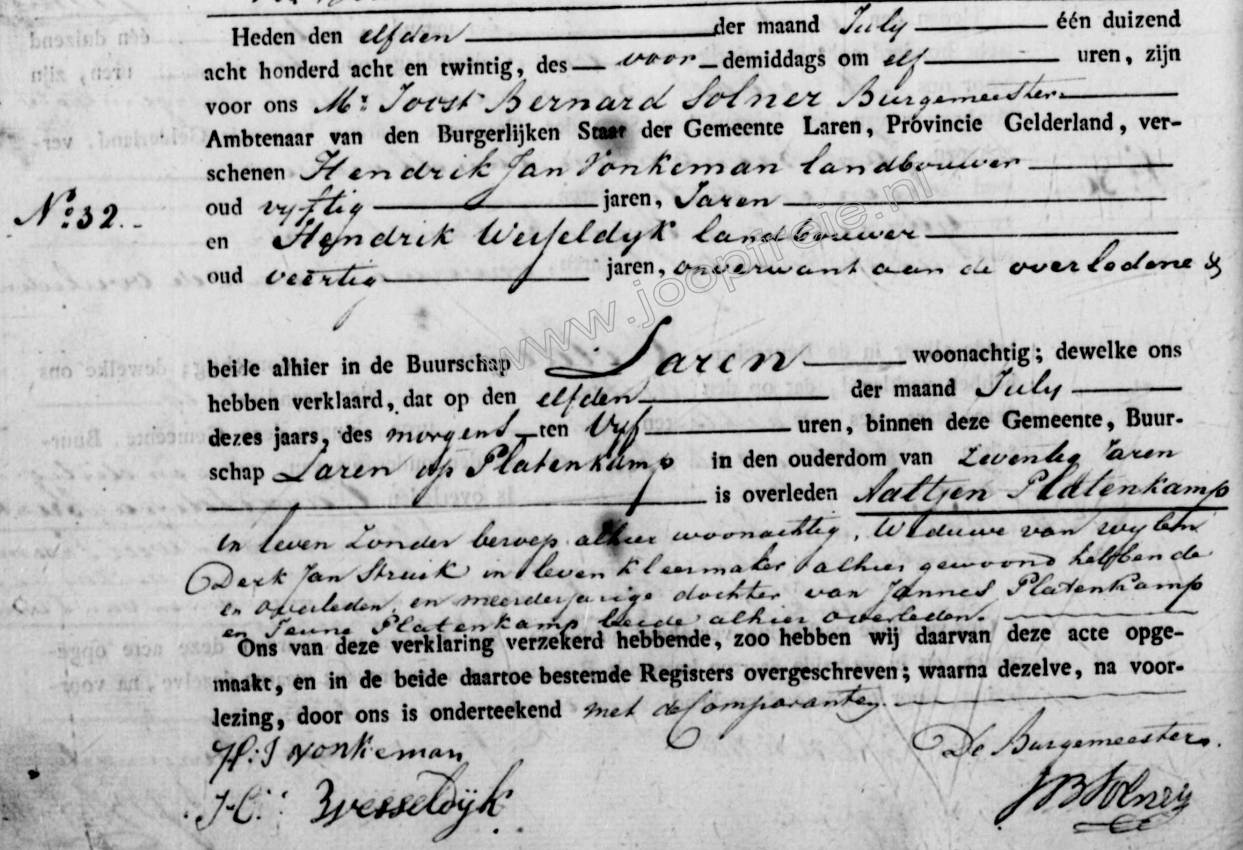 Heden den elfden der maand July één duizend
acht honderd acht en twintig, des voor demiddags om elf uren, zijn
voor ons Mr. Joost Bernard Solner Burgemeester
Ambtenaar van den Burgerlijken Staat der Gemeente Laren, Provincie Gelderland, ver-
schenen Hendrik Jan Vonkeman landbouwer
oud vyftig jaren, Jaren
No. 32.
en Hendrik Wesseldyk landbouwer
oud veertig jaren, onverwant aan de overledene &
beide alhier in de Buurschap Laren woonachtig; dewelke ons
hebben verklaard, dat op den elfden der maand July
dezes jaars, des morgens ten Vyf uren, binnen deze Gemeente, Buur-
schap Laren op Platenkamp in den ouderdom van Zeventig Jaren
is overleden Aaltjen Platenkamp
in leven Zonder beroep alhier woonachtig, Weduwe van wylen
Derk Jan Struik in leven kleermaker alhier gewoond hebbende
en overleden, en meerderjarige dochter van Jannes Platenkamp
en Jenne Platenkamp beide alhier overleden.
Ons van deze verklaring verzekerd hebbende, zoo hebben wij daarvan deze acte opge-
maakt, en in de beide daartoe bestemde Registers overgeschreven; waarna dezelve, na voor-
lezing, door ons is onderteekend met de Comparanten
H: J Vonkeman
De Burgemeester.
H: Wesseldyk
JBSolner
www.joopfreie.nl